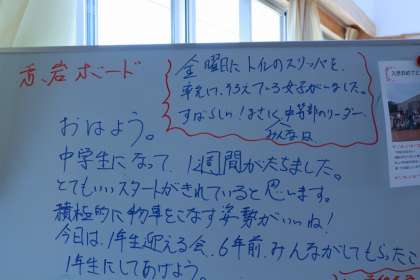 赤岩ボード
金曜日にトイレのスリッパを、
率先して、そろえている女子がいました。
すばらしい！まさしく中等部のリーダー、
みんなは
おはよう。
中学生になって、1週間がたちました。
とてもいいスタートがきれていると思います。
積極的に物事をこなす姿勢がいいね！
今日は、1年生迎える会。6年前、みんながしてもらった
1年生にしてあげよう。